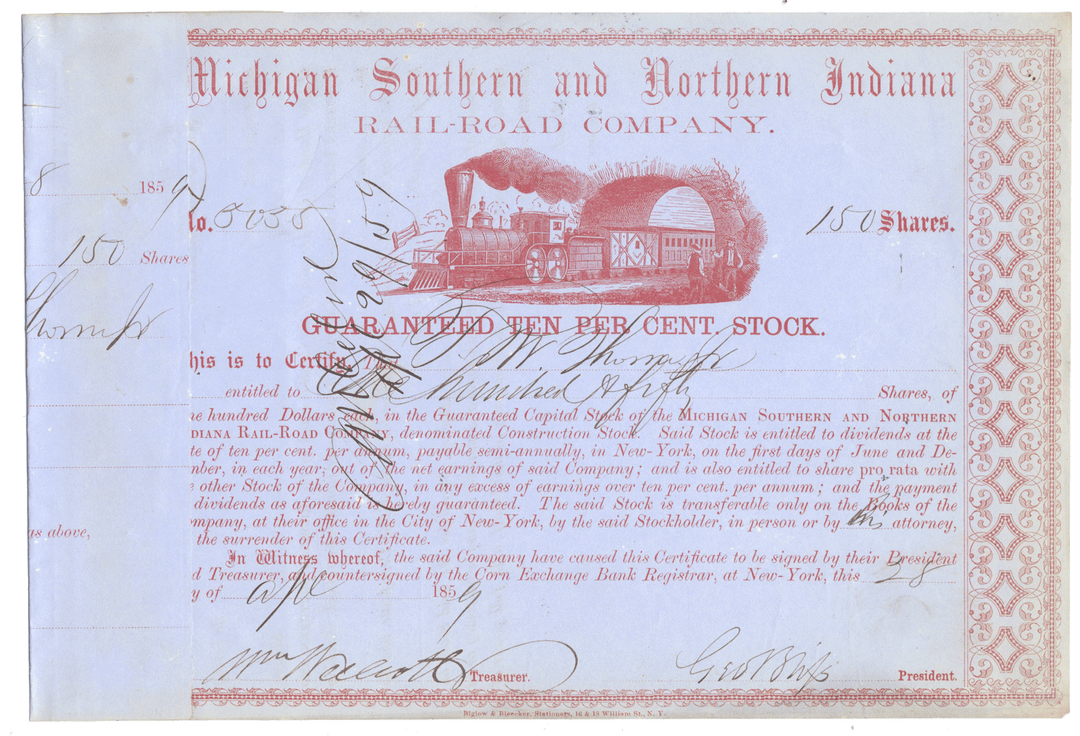 Michigan Southern and Northern Indiana
RAIL-ROAD COMPANY.
8 1859
No. 5035
150 Shares.
150 Shares
Thorne Jr
GUARANTEED TEN PER CENT. STOCK.
his is to Certify, That T W Thorne Jr
entitled to One hundred & fifty Shares, of
ne hundred Dollars each, in the Guaranteed Capital Stock of the MICHIGAN SOUTHERN AND NORTHERN
DIANA RAIL-ROAD COMPANY, denominated Construction Stock. Said Stock is entitled to dividends at the
te of ten per cent. per annum, payable semi-annually, in New-York, on the first days of June and De-
mber, in each year, out of the net earnings of said Company; and is also entitled to share pro rata with
other Stock of the Company, in any excess of earnings over ten per cent. per annum; and the payment
dividends as aforesaid is hereby guaranteed. The said Stock is transferable only on the Books of the
mpany, at their office in the City of New-York, by the said Stockholder, in person or by his attorney,
as above,
the surrender of this Certificate.
In Witness whereof, the said Company have caused this Certificate to be signed by their President
d Treasurer, and countersigned by the Corn Exchange Bank Registrar, at New-York, this 28
y of Apl 1859
Wm Walcott Treasurer.
Geo Bliss President.
Biglow & Bleecker, Stationers, 16 & 18 William St., N. Y.
Apl 29/59